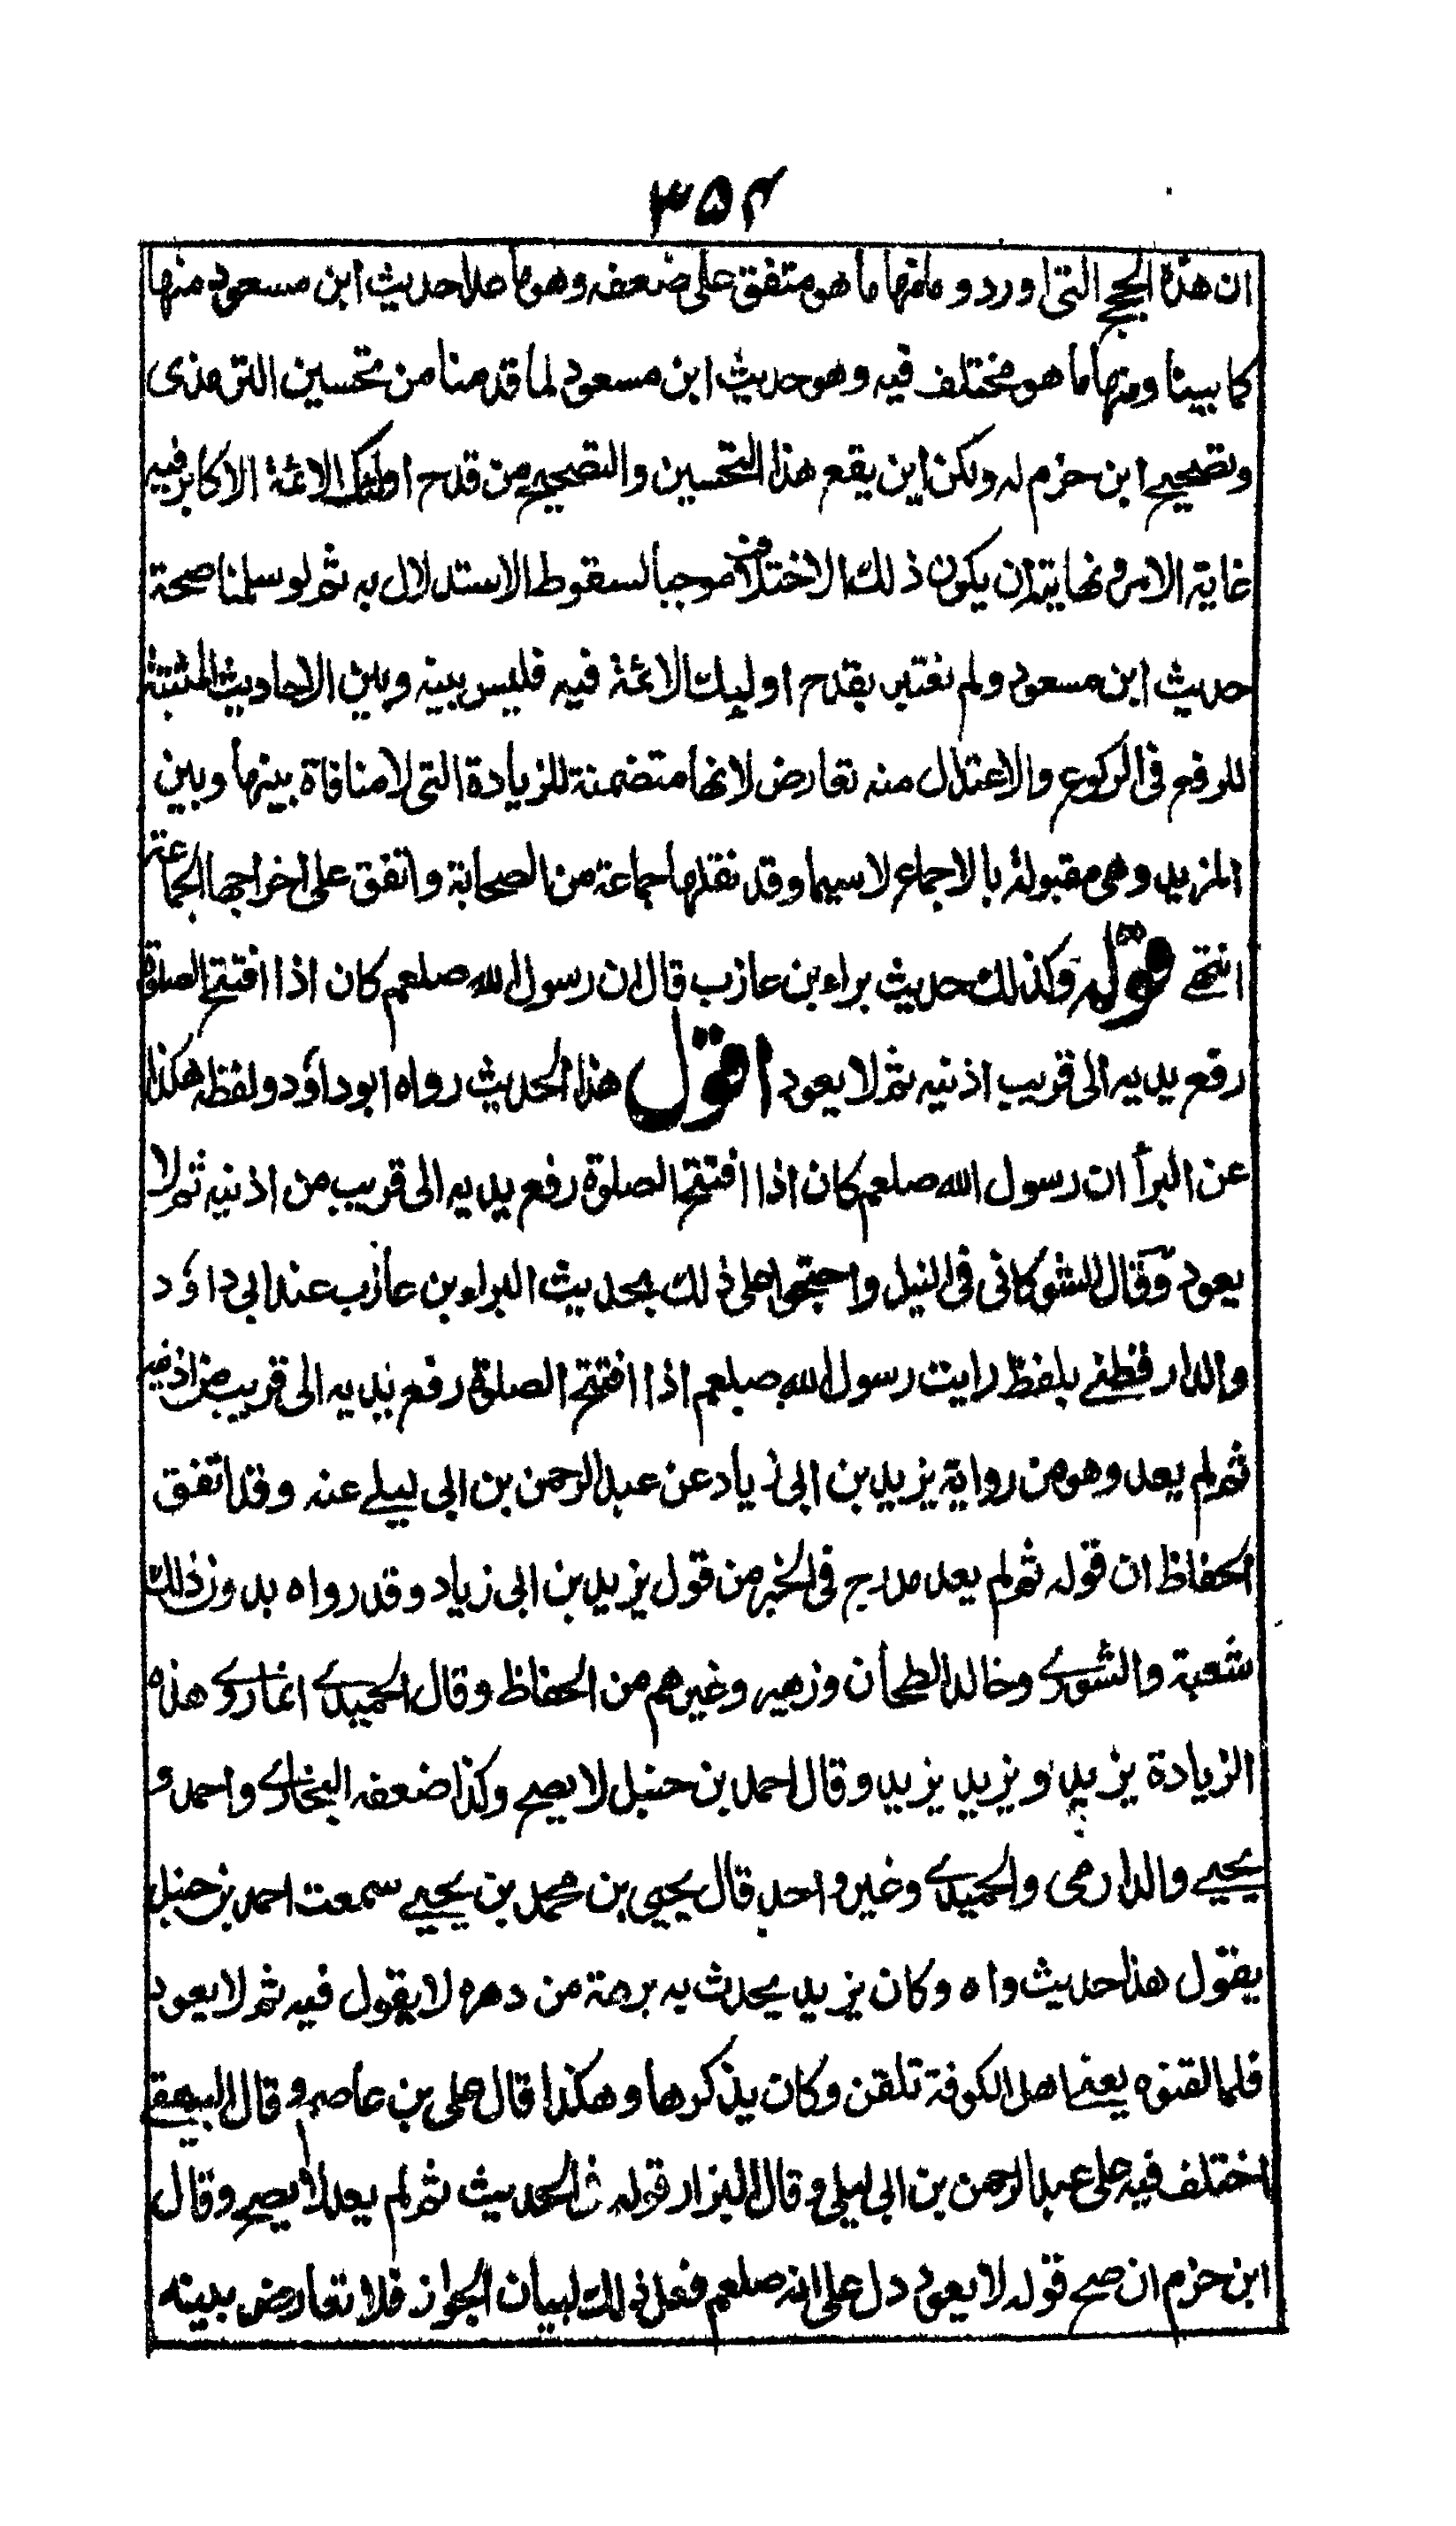 ۳۵۴
ان هذه الحجج التى اوردوها منها ما هو متفق على ضعفه وهو ما عدا حديث ابن مسعود منها
كما بينا ومنها ما هو مختلف فيه وهو حديث ابن مسعود لما قدمنا من تحسين الترمذى
وتصحيح ابن حزم له ولكن اين يقع هذا التحسين والتصحيح من قدح اولئك الائمة الاكابر فيه
غاية الامر ونهايته ان يكون ذلك الاختلاف موجبا لسقوط الاستدلال به ثم لو سلمنا صحة
حديث ابن مسعود ولم نعتبر بقدح اوليك الائمة فيه فليس بينه وبين الاحاديث المثبتة
للرفع فى الركوع والاعتدال منه تعارض لانها متضمنة للزيادة التى لا منافاة بينها وبين
المزيد وهى مقبولة بالاجماع لا سيما وقد نقلها جماعة من الصحابة واتفق على اخراجها الجماعة
انتهى قوله وكذلك حديث براء بن عازب قال ان رسول الله صلعم كان اذا افتتح الصلوة
رفع يديه الى قريب اذنيه ثم لا يعود اقول هذا الحديث رواه ابو داؤد ولفظه هكذا
عن البرأ ان رسول الله صلعم كان اذا افتتح الصلوة رفع يديه الى قريب من اذنيه ثم لا
يعود وقال الشوكانى فى النيل واحتجوا على ذلك بحديث البراء بن عازب عند ابى داؤد
والدارقطنى بلفظ رايت رسول الله صلعم اذا افتتح الصلوة رفع يديه الى قريب من اذنيه
ثم لم يعد وهو من رواية يزيد بن ابى زياد عن عبد الرحمن بن ابى ليلى عنه وقد اتفق
الحفاظ ان قوله ثم لم يعد مدرج فى الخبر من قول يزيد بن ابى زياد وقد رواه بدون ذلك
شعبة والثورى وخالد الطحان وزهير وغيرهم من الحفاظ وقال الحميدى انما روى هذه
الزيادة يزيد ويزيد يزيد وقال احمد بن حنبل لا يصح وكذا ضعفه البخارى واحمد و
يحيى والدارمى والحميدى وغير واحد قال يحيى بن محمد بن يحيى سمعت احمد بن حنبل
يقول هذا حديث واه وكان يزيد يحدث به برهة من دهره لا يقول فيه ثم لا يعود
فلما لقنوه يعنى اهل الكوفة تلقن وكان يذكرها وهكذا قال على بن عاصم وقال البيهقى
اختلف فيه على عبد الرحمن بن ابى ليلى وقال البزار قوله فى الحديث ثم لم يعد لا يصح وقال
ابن حزم ان صح قوله لا يعود دل على انه صلعم فعل ذلك لبيان الجواز فلا تعارض بينه